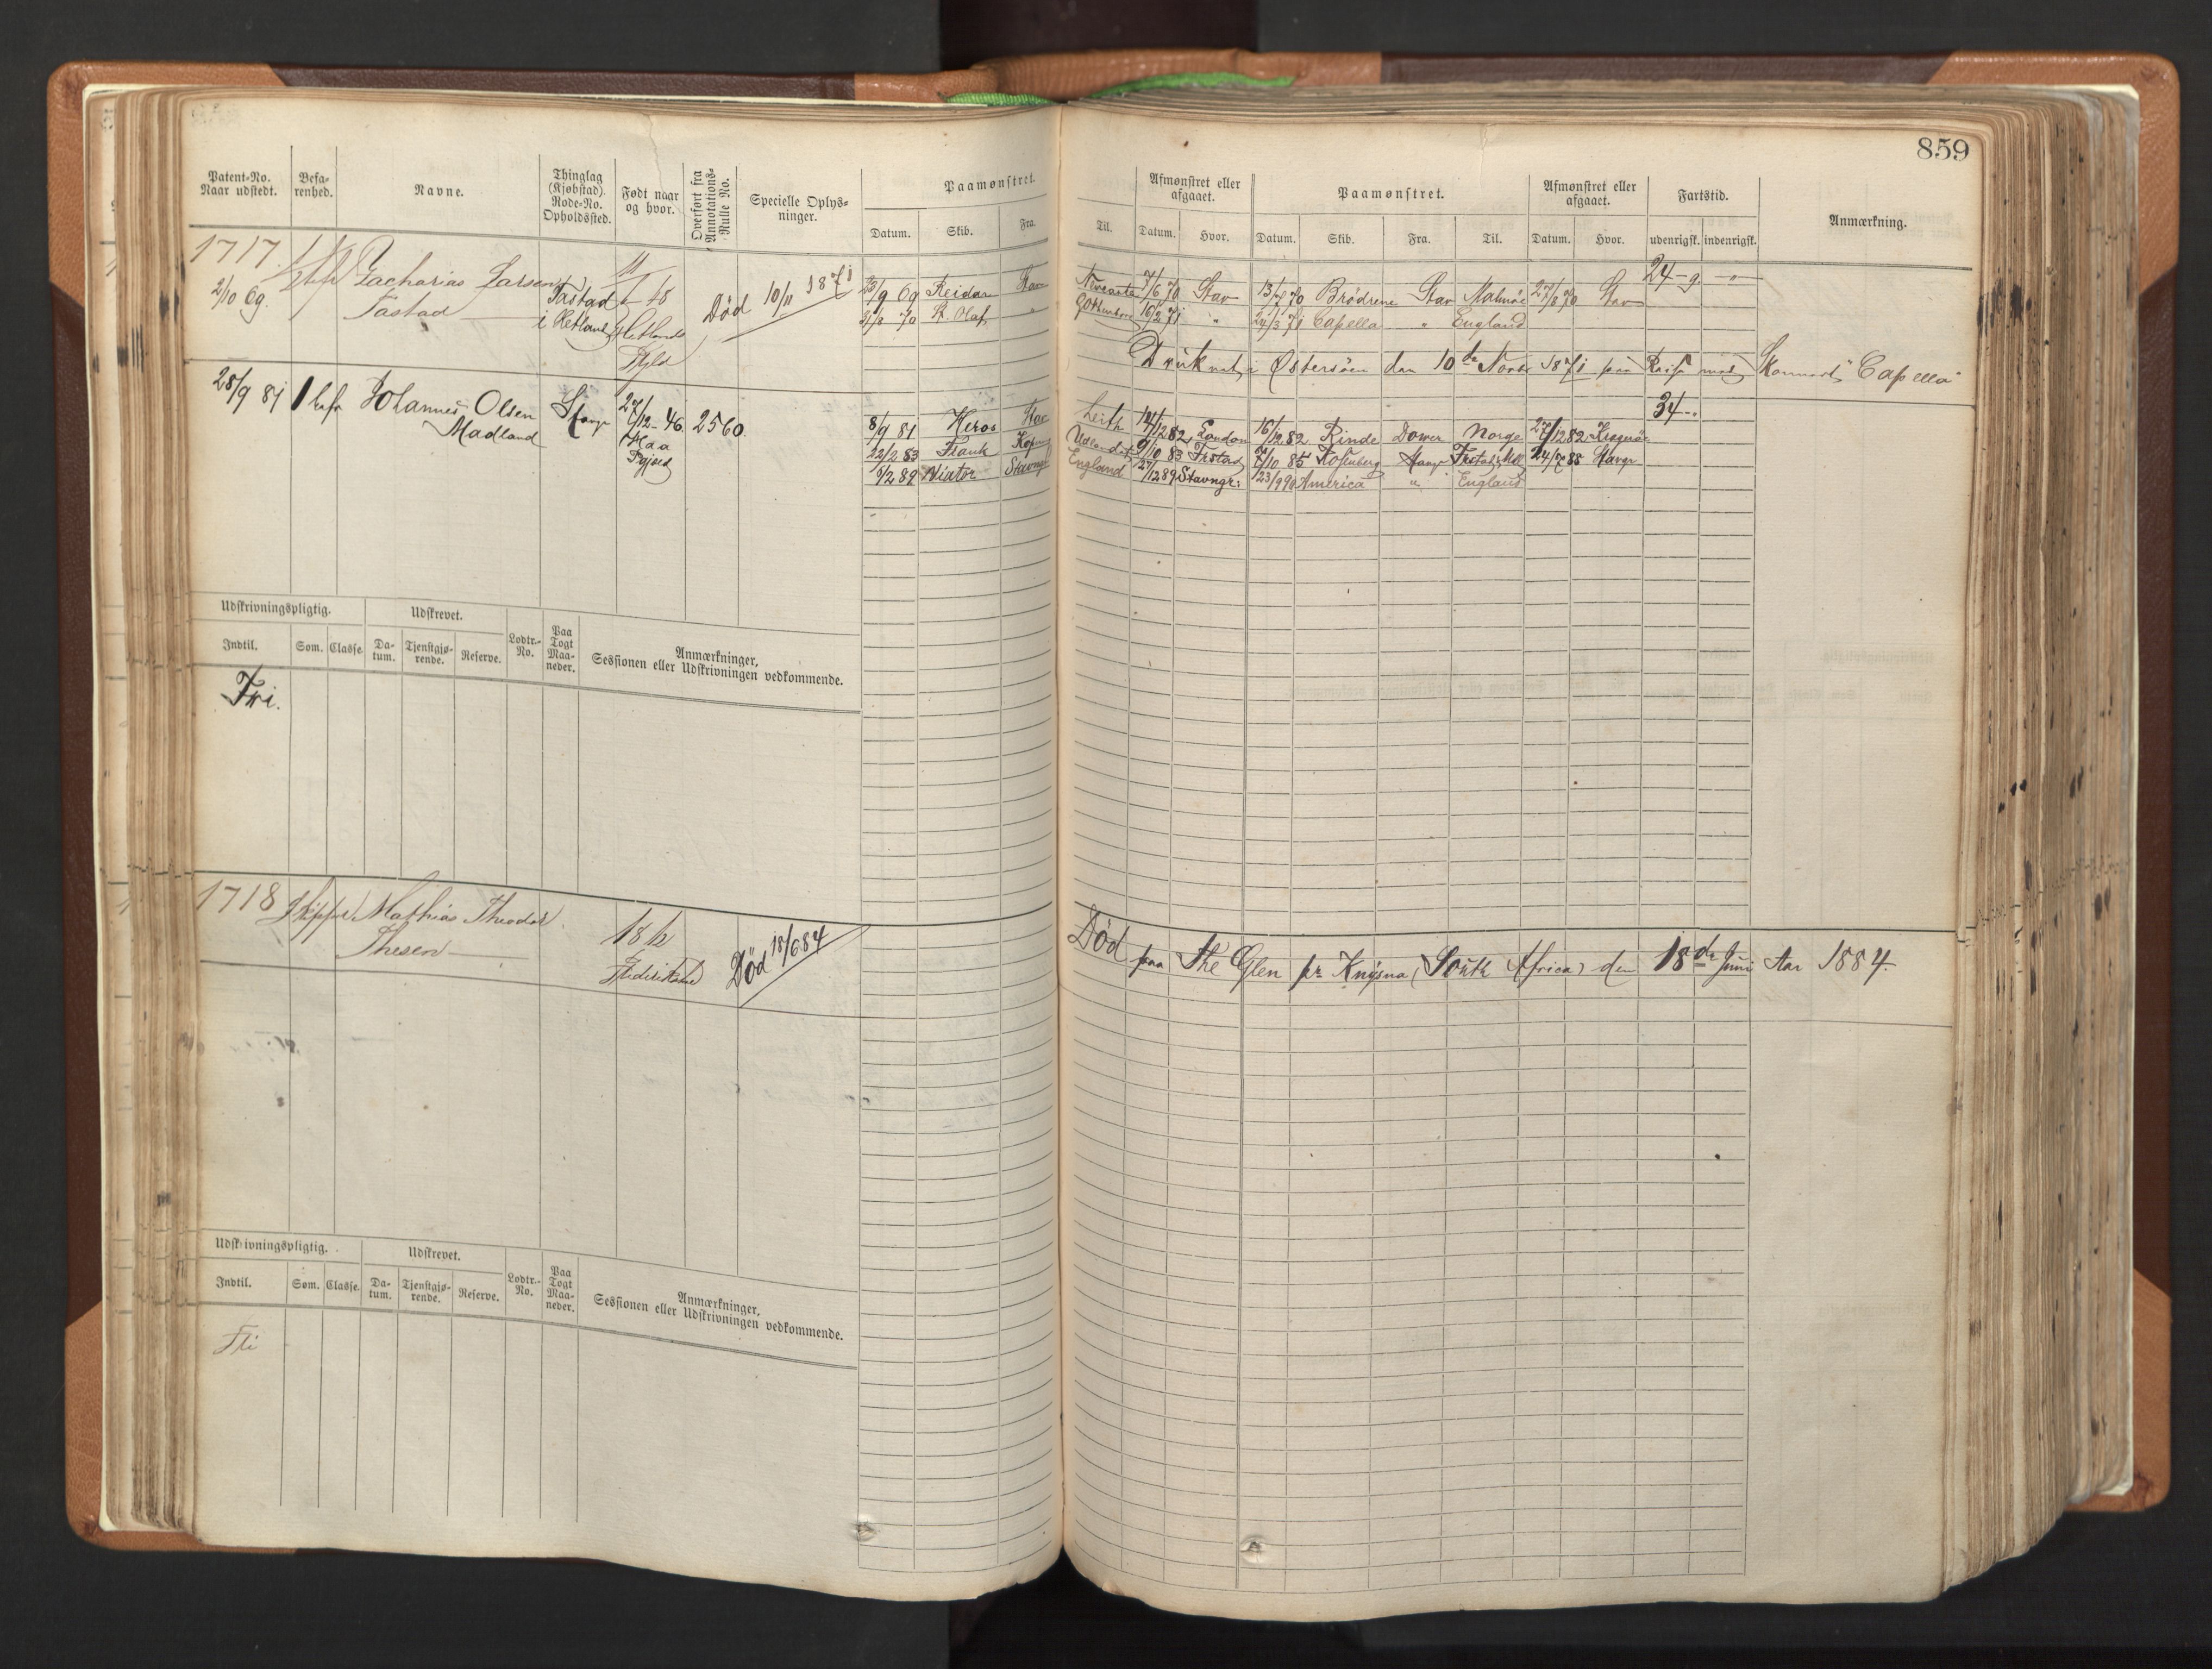 859
Patent-No. Naar udstedt.
Befarenhed.
Navne.
Thinglag (Kjøbstad). Rode-No. Opholdssted.
Født naar og hvor.
Overført fra Annotations-Rulle No.
Specielle Oplysninger.
Paamønstret.
Datum. Skib. Fra.
Til.
Afmønstret eller afgaaet.
Datum. Hvor.
Paamønstret.
Datum. Skib. Fra. Til.
Afmønstret eller afgaaet.
Datum. Hvor.
Fartstid.
udenrigsk. indenrigsk.
Anmærkning.
1717.
2/10 69.
Zacharias Larsen
Tastad
Tastad
i Hetland
48
Hetlands
Død 10/11 1871
23/9 69 Reidar Stav
7/6 70 Stav 13/7 70 Brödrene Stav Malmöe 27/8 70 Stav
24 - 9. - "
31/8 70 St. Olaf "
Gothenborg 16/2 71 " 24/3 71 Capella " England
Druknet i Østersöen den 10de Novbr 1871 paa Reise med Skonnert "Capella"
28/9 81
1 befr
Johannes Olsen
Madland
Stavgr
27/12 - 46.
2560.
8/9 81 Heros Stav
Leith 14/12 82 London 16/12 82 Rinde Dower Norge 27/12 82
34 - "
22/2 83 Frank
Udlandet 9/10 83 Frstad 7/10 85 Rosenberg Stavgr 24/7 88 Stavgr
6/2 89 Viator Stavngr
England 27/12 89 Stavngr: 23/9 90 America " England
Udskrivningspligtig.
Indtil. Som. Classe.
Udskrevet.
Datum. Tjenstgjørende. Reserve.
Lodtr.-No.
Paa Togt Maaneder.
Anmærkninger,
Sessionen eller Udskrivningen vedkommende.
Fri.
1718
Skipper
Mathias Theodor
Thesen
18 12
Død 18/6 84
Død paa The Glen pr Knysna (South Africa) den 18de Juni Aar 1884.
Udskrivningspligtig.
Indtil. Som. Classe.
Udskrevet.
Datum. Tjenstgjørende. Reserve.
Lodtr.-No.
Paa Togt Maaneder.
Anmærkninger,
Sessionen eller Udskrivningen vedkommende.
Fri